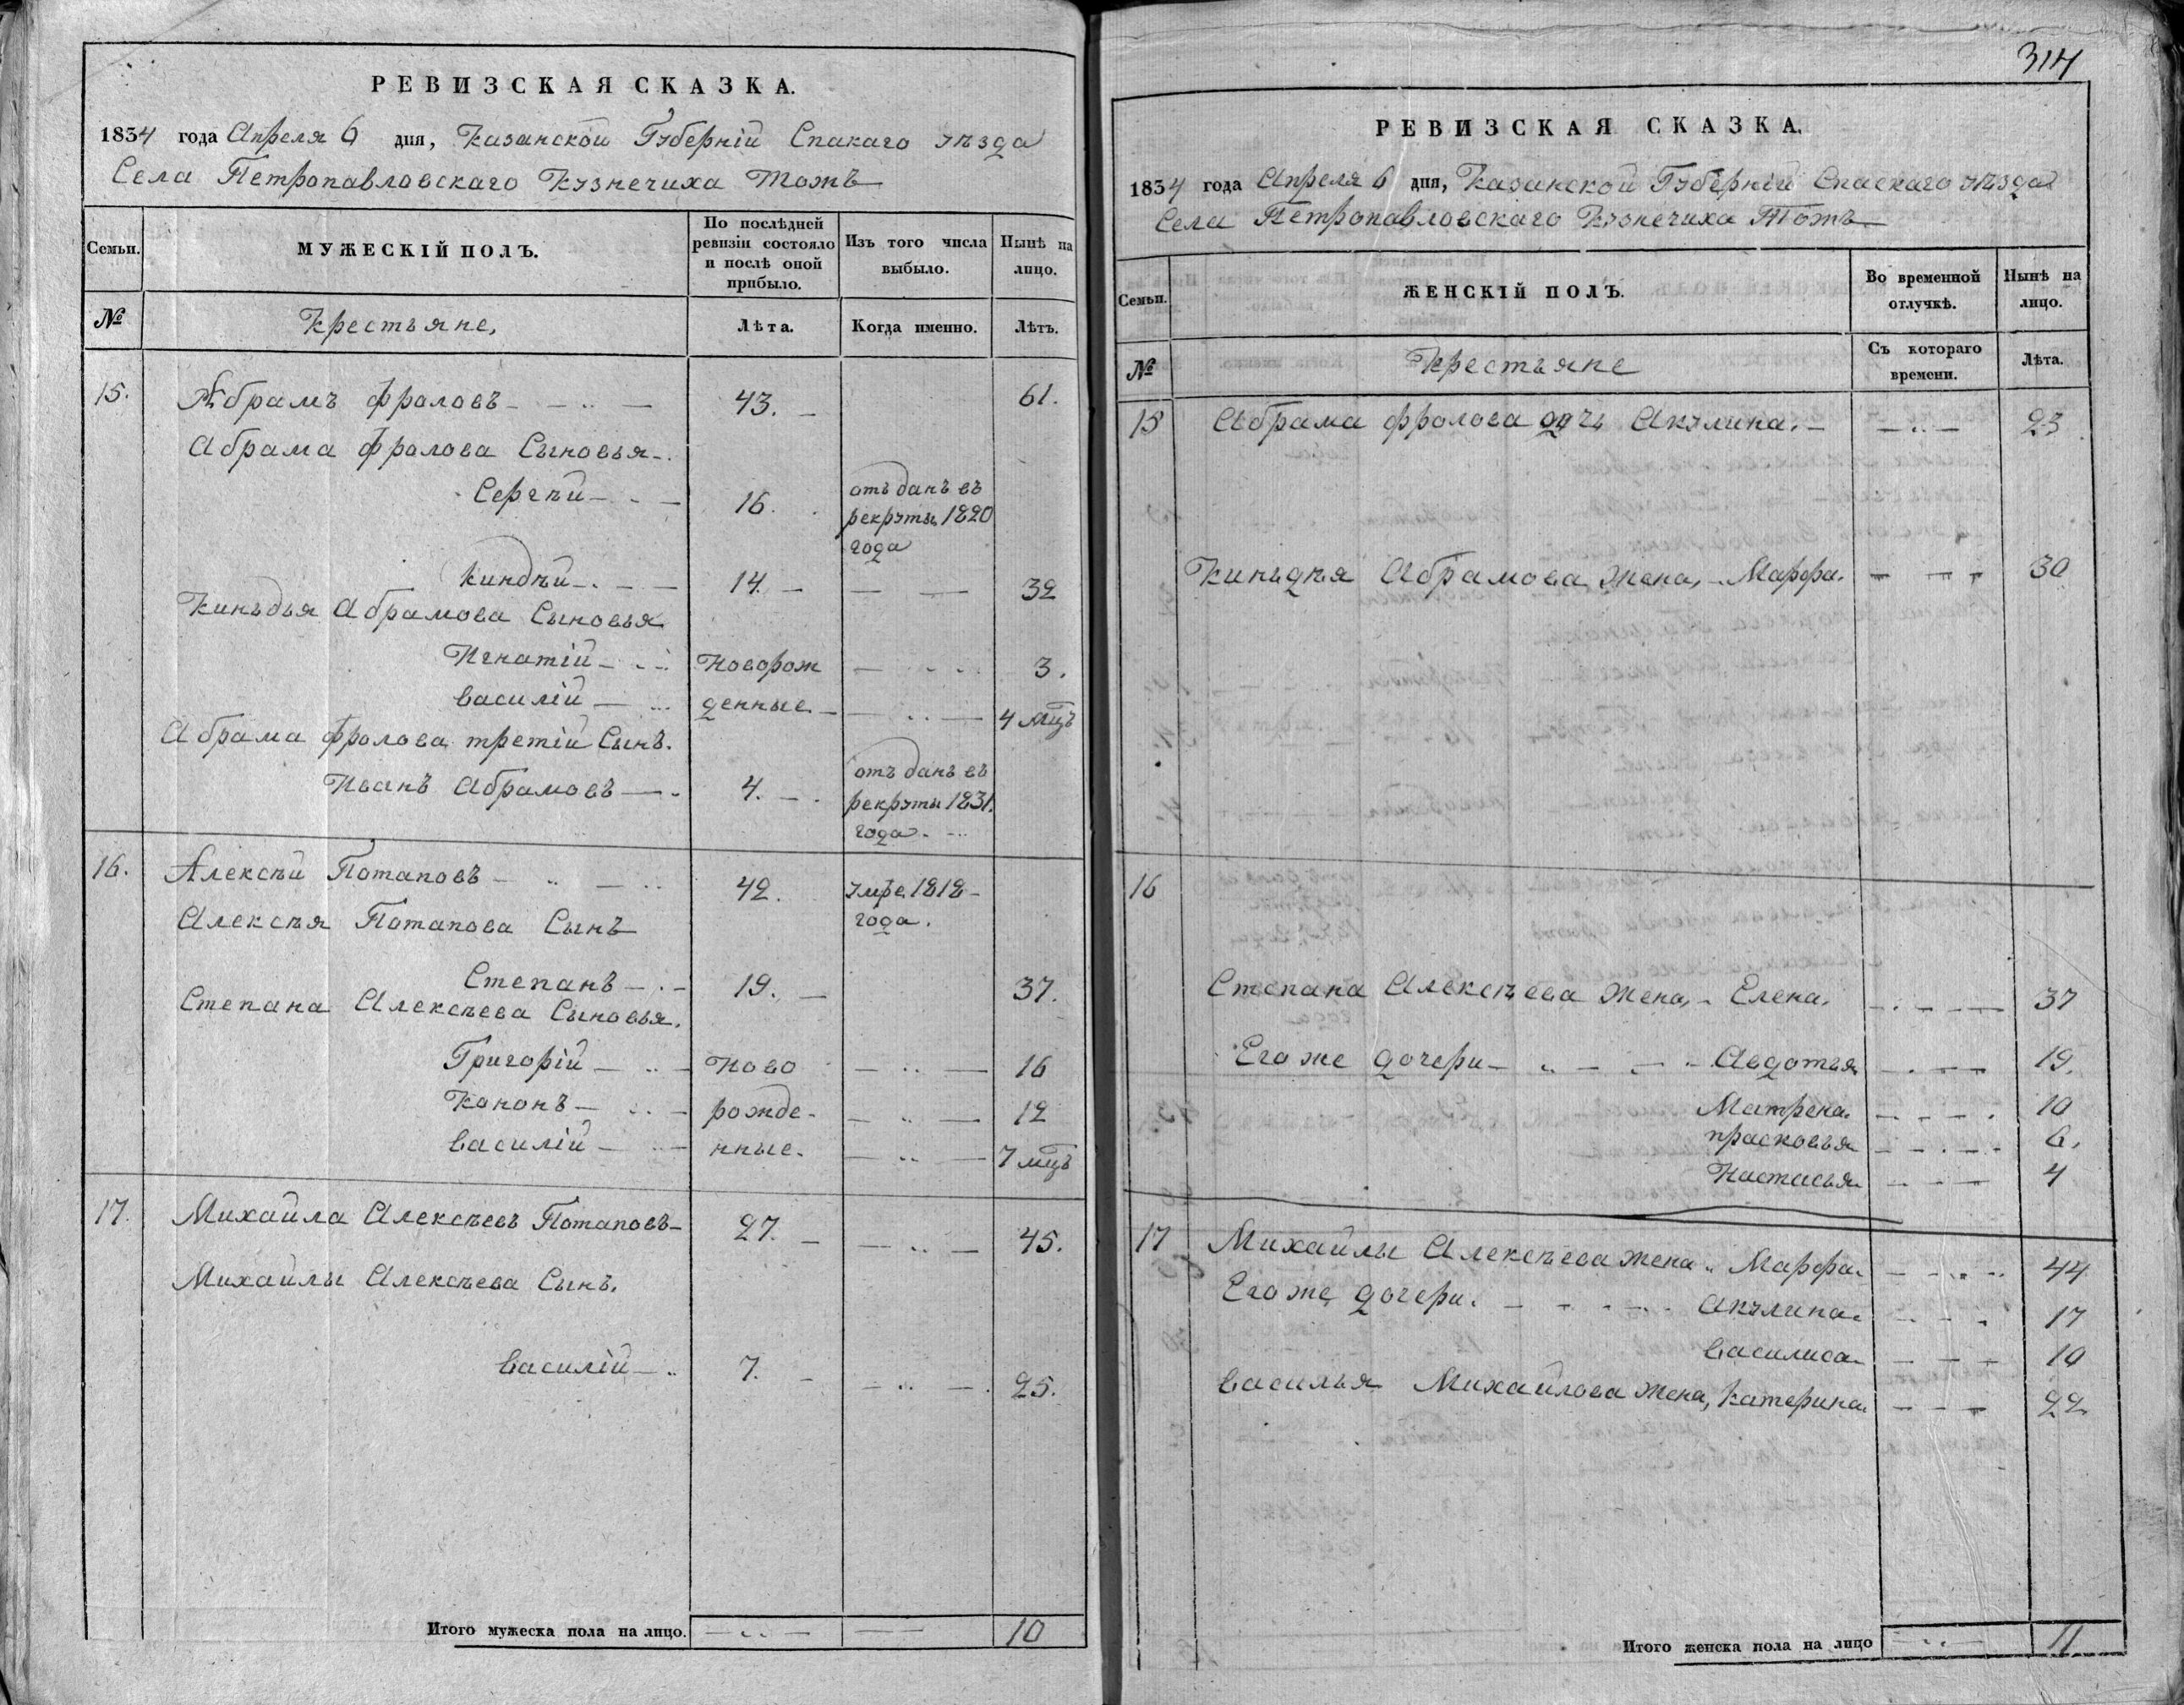 РЕВИЗСКАЯ СКАЗКА.
1834 года Апреля 6 дня, Казанской Губерніи Спакаго уѣзда
Села Петропавловскаго Кузнечиха тожъ
Семьи. МУЖЕСКІЙ ПОЛЪ. По послѣдней ревизіи состояло и послѣ оной прибыло. Изъ того числа выбыло. Нынѣ на лицо.
№ Крестьяне, Лѣта. Когда именно. Лѣтъ.
15. Абрамъ фроловъ 43. 61.
Абрама фролова Сыновья
Сергѣй 16. отъ данъ въ рекруты 1820 года
Киндѣй 14. 32
Киньдья Абрамова Сыновья
Игнатій Новорож 3.
Василій денные 4 мцъ
Абрама фролова третій Сынъ.
Иванъ Абрамовъ 4. отъ данъ въ рекруты 1831. года.
16. Алексѣй Потаповъ 42. умре. 1818 года.
Алексѣя Потапова Сынъ
Степанъ 19. 37.
Степана Алексѣева Сыновья.
Григорій Ново 16
Кононъ рожде- 12
Василій нные. 7 мцъ
17. Михайла Алексѣевъ Потаповъ 27. 45.
Михайлы Алексѣева Сынъ.
Василій 7. 25.
Итого мужеска пола на лицо. 10
314
РЕВИЗСКАЯ СКАЗКА.
1834 года Апреля 6 дня, Казанской Губерніи Спаскаго уѣзда
Села Петропавловскаго Кузнечиха Тожъ
Семьи. ЖЕНСКІЙ ПОЛЪ. Во временной отлучкѣ. Нынѣ на лицо.
№ Крестьяне Съ котораго времени. Лѣта.
15 Абрама фролова дочь Акулина. 23
Киньдѣя Абрамова жена, Марфа. 30
16
Степана Алексѣева жена, Елена. 37
Его же дочери Авдотья 19.
Матрена. 10
прасковья 6.
Настасья 4
17 Михайлы Алексѣева жена Марфа. 44
Его же дочери. Акулина. 17
Василиса 10
Василья Михайлова жена, Катерина 22
Итого женска пола на лицо 11